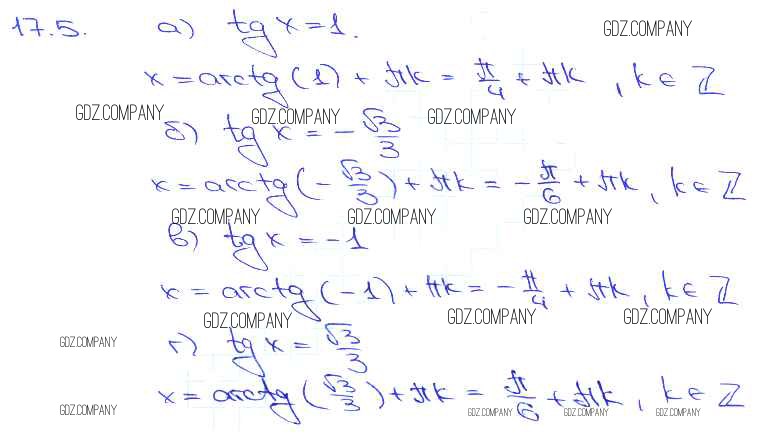 17.5. а) tg x = 1. GDZ.COMPANY
x = arctg(1) + πk = π/4 + πk, k ∈ ℤ
GDZ.COMPANY GDZ.COMPANY GDZ.COMPANY
б) tg x = -√3/3
x = arctg(-√3/3) + πk = -π/6 + πk, k ∈ ℤ
GDZ.COMPANY GDZ.COMPANY GDZ.COMPANY
в) tg x = -1
x = arctg(-1) + πk = -π/4 + πk, k ∈ ℤ
GDZ.COMPANY GDZ.COMPANY GDZ.COMPANY
GDZ.COMPANY г) tg x = √3/3
x = arctg(√3/3) + πk = π/6 + πk, k ∈ ℤ
GDZ.COMPANY GDZ.COMPANY GDZ.COMPANY GDZ.COMPANY